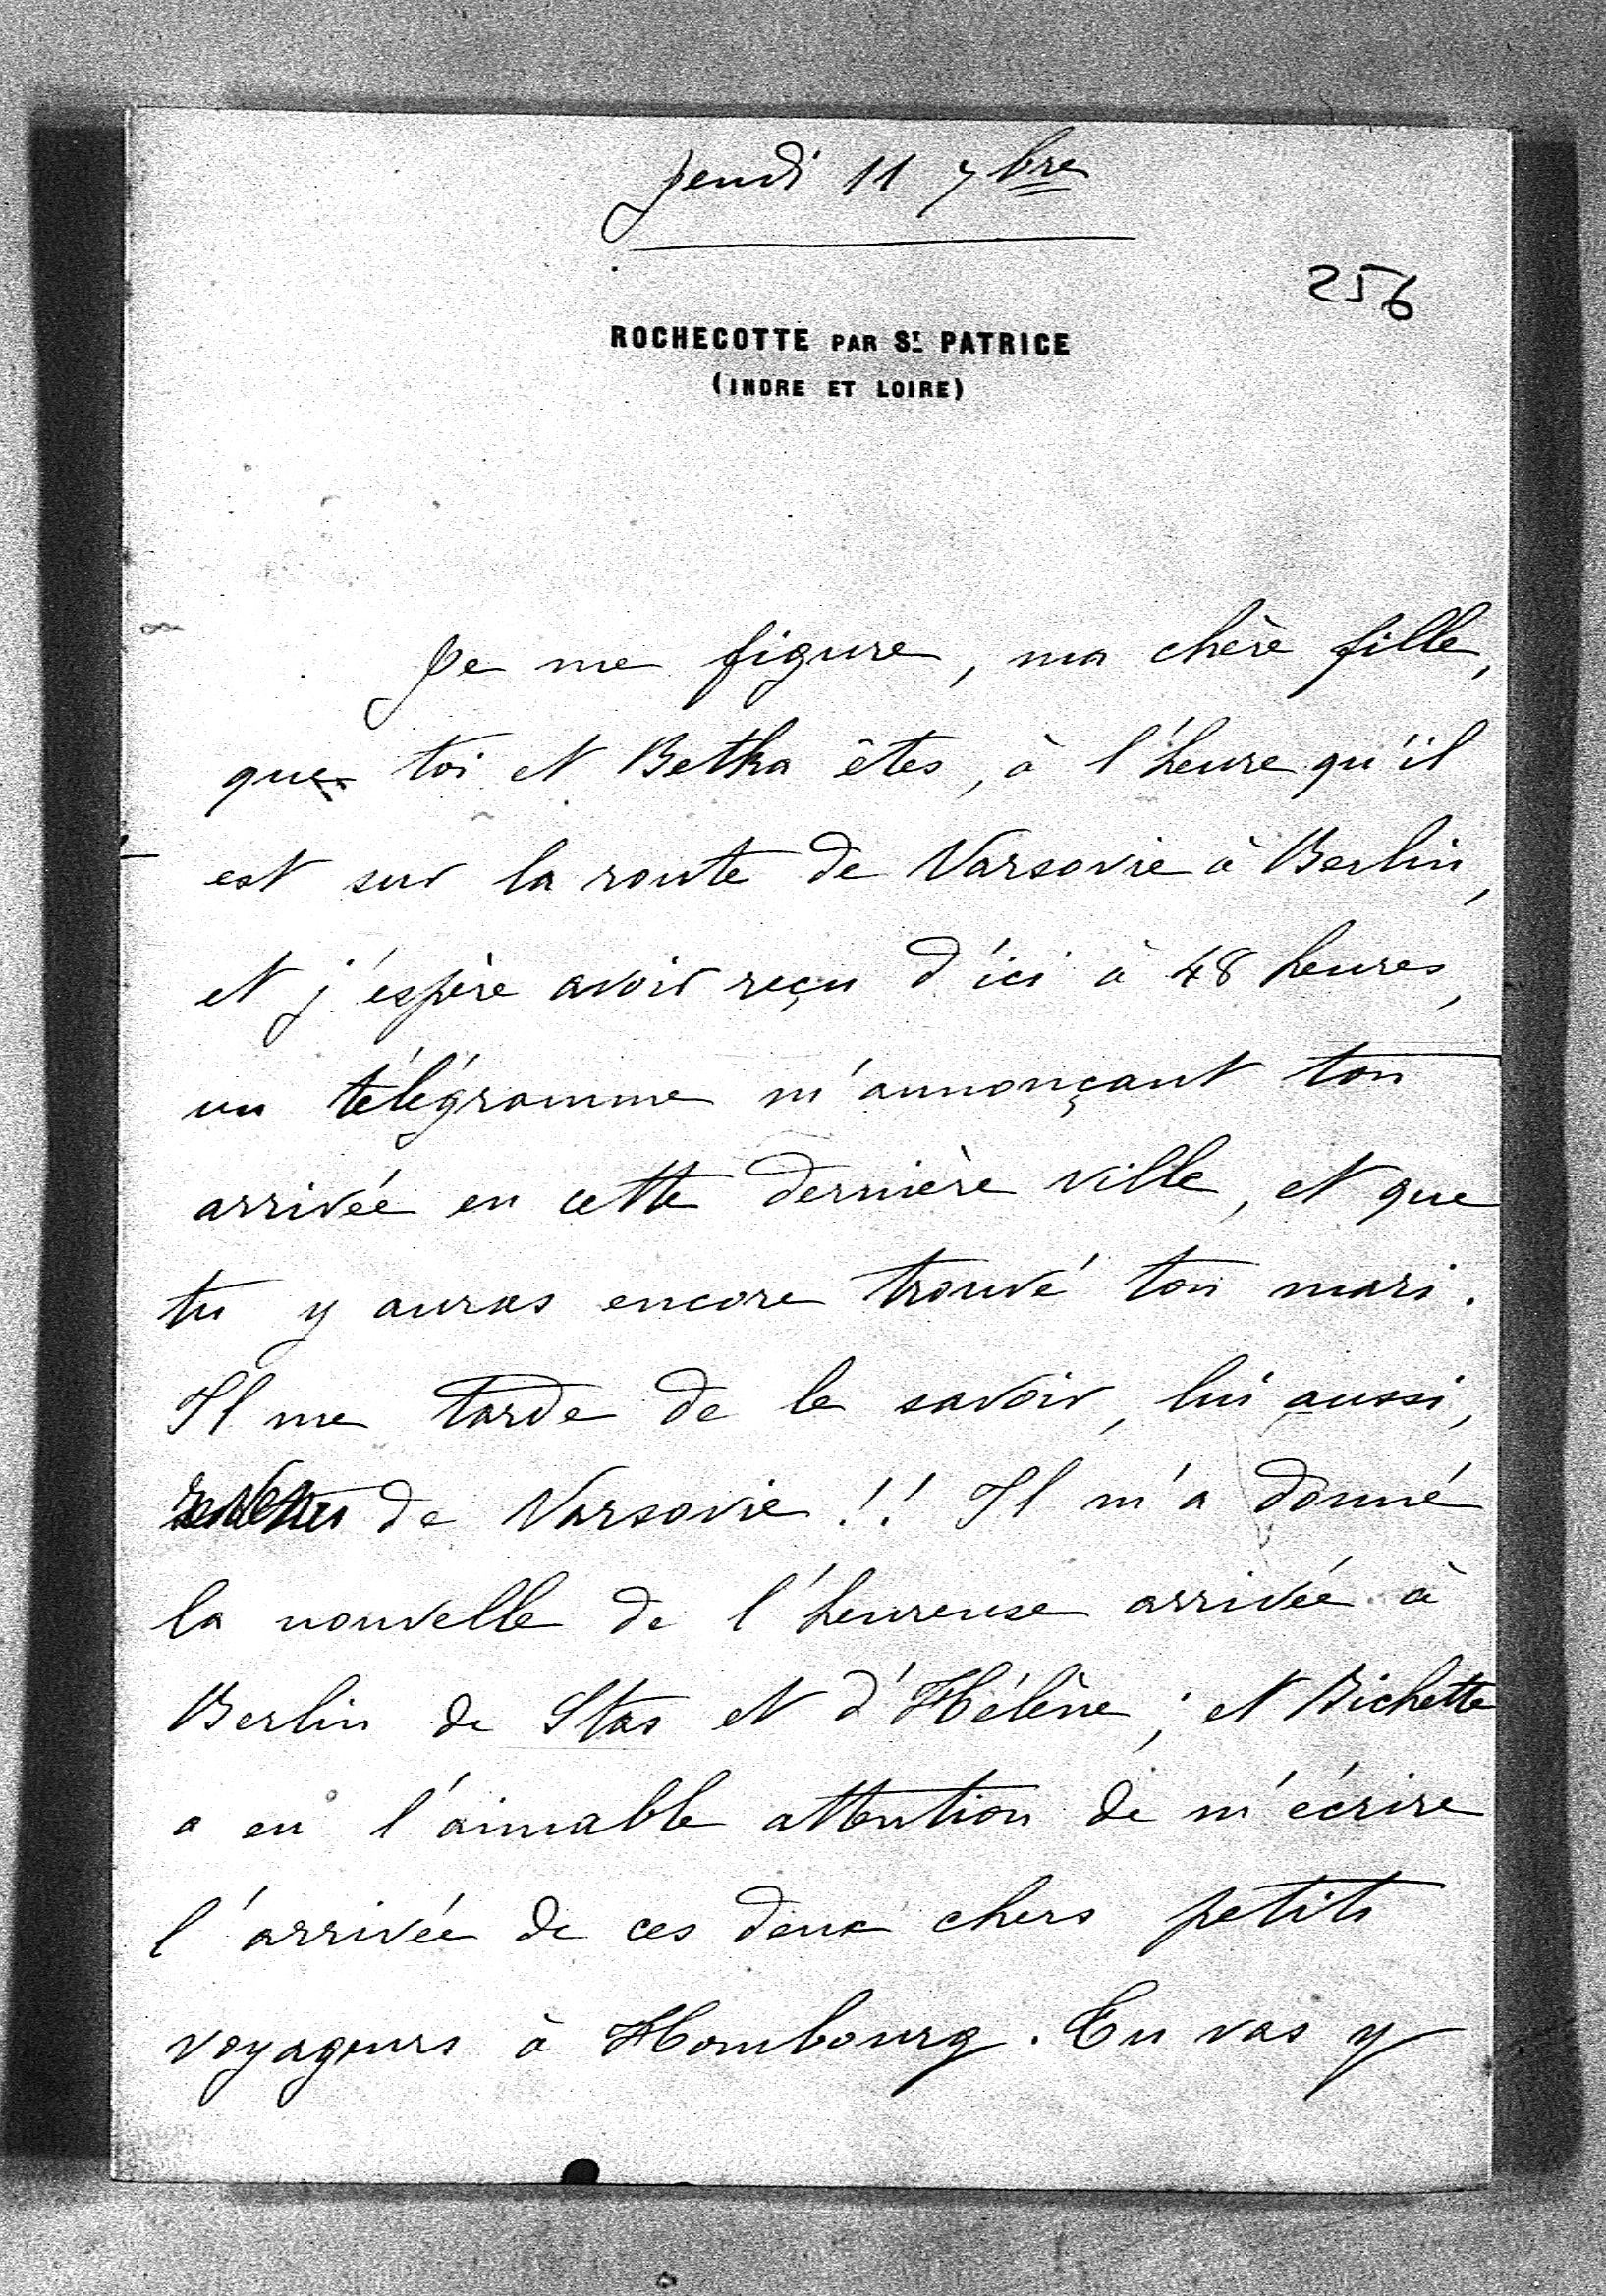 Jeudi 11 7bre
256
ROCHECOTTE PAR ST PATRICE
(INDRE ET LOIRE)
Je me figure, ma chère fille,
que toi et Betka êtes, à l'heure qu'il
est sur la route de Varsovie à Berlin,
et j'espère avoir reçu d'ici à 48 heures,
un télégramme m'annonçant ton
arrivée en cette dernière ville, et que
tu y auras encore trouvé ton mari.
Il me tarde de le savoir, lui aussi,
de Varsovie !! Il m'a donné
la nouvelle de l'heureuse arrivée à
Berlin de Stas et d'Hélène ; et Bichette
a eu l'aimable attention de m'écrire
l'arrivée de ces deux chers petits
voyageurs à Hombourg. Tu vas y